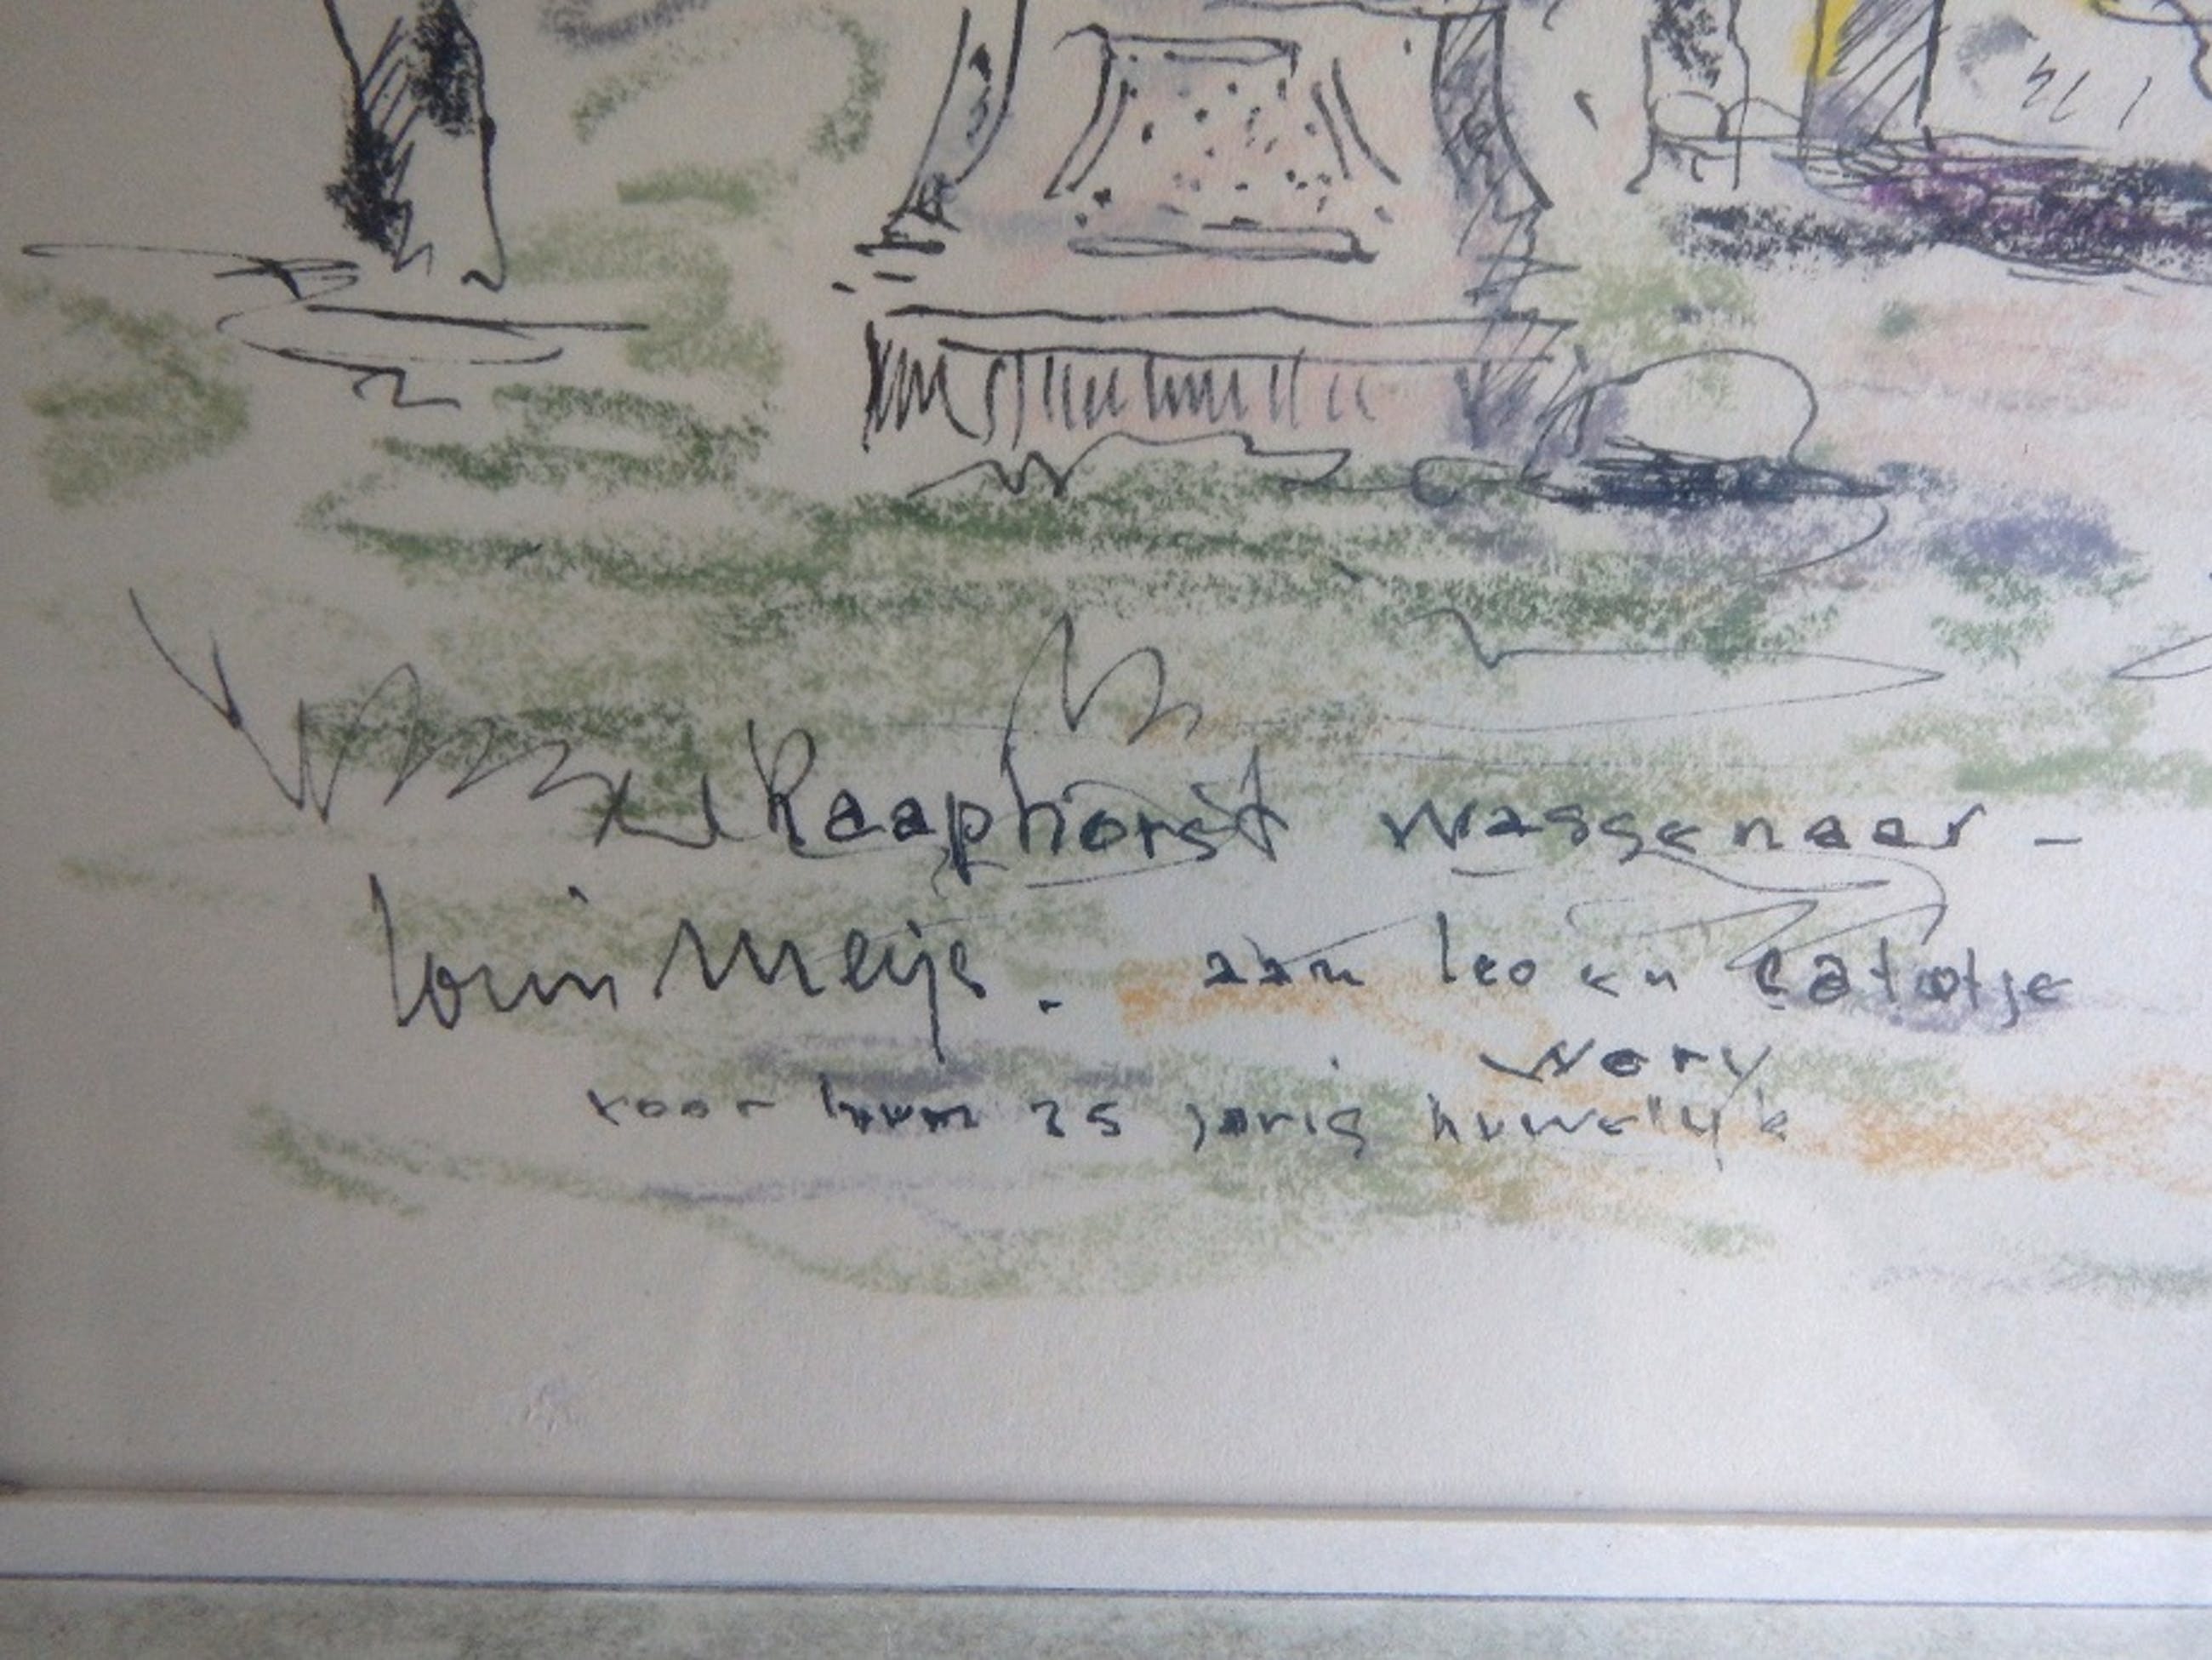 Raaphorst Wassenaar -
Louis Meijs. aan leo en catotje
Wery
voor hun 25 jarig huwelijk